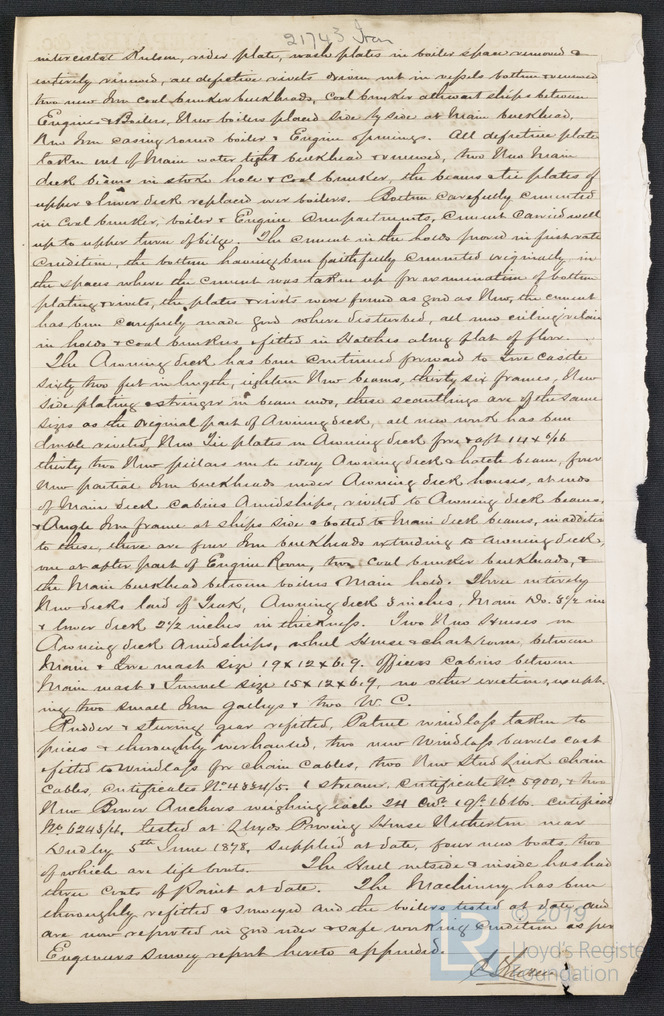 21743 Iron
intercostal Kelson, rider plate, wash plates in boiler space removed &
entirely renewed, all defective rivets driven out in vessels bottom & renewed
two new Iron coal bunker bulkheads, Coal bunker athwart ships between
Engines & Boilers, New boilers placed side by side at Main bulkhead,
New Iron casing round boiler & Engine openings. All defective plate
taken out of Main water tight bulkhead & renewed, two New Main
deck beams in stoke hole & Coal bunker, the beams & tie plates of
upper & lower deck replaced over boilers. Bottom carefully cemented
in Coal bunker, boiler & Engine Compartments, cement carried well
up to upper turn of bilge. The cement in the holds proved in first rate
Condition, the bottom having been faithfully cemented originally, in
the spaces where the cement was taken up for examination of bottom
plating & rivets, the plates & rivets were found as good as New, the cement
has been carefully made good where disturbed, all new ceiling
in holds & coal bunkers, & fitted in Hatches along flat of floor.
The Awning deck has been continued forward to Fore castle
sixty two feet in length, eighteen New beams, thirty six frames, New
side plating & stringer in beam ends, these scantlings are of the same
sizes as the original part of Awning deck, all new work has been
double riveted, New Tie plates in Awning deck fore & aft 14 x 6/16
thirty two New pillars one to every Awning deck & hatch beam, four
New partial Iron bulkheads under Awning deck houses, at ends
of Main deck cabins Amidships, riveted to Awning deck beams,
& Angle Iron frame at ships side & bolted to Main deck beams, in addition
to these, there are four Iron bulkheads extending to Awning deck,
one at after part of Engine Room, two Coal bunker bulkheads, &
the Main bulkhead between boilers & Main hold. Three entirely
New decks laid of Teak, Awning deck 3 inches, Main Do. 3½ in
& lower deck 2½ inches in thickness. Two New Houses on
Awning deck Amidships, wheel House & chart room, between
Main & Fore mast size 19 x 12 x 6.9. Officers cabins between
Main mast & Funnel size 15 x 12 x 6.9, no other erection, except-
ing two small Iron Galleys & two W.C.
Rudder & steering gear refitted, Patent windlass taken to
pieces & thoroughly overhauled, two new Windlass barrels cast
& fitted to Windlass for chain Cables, two New Stud Link chain
Cables, Certificates No 4334/5. 1 stream, Certificate No. 5900, & two
New Bower Anchors weighing each 24 cwt. 1 qr. 16 lbs. Certificate
No 6243/4, tested at Lloyds Proving House Netherton near
Dudley 5th June 1878, supplied at date, four new boats, two
of which are life boats. The Hull outside & inside has had
three coats of paint at date. The Machinery has been
thoroughly refitted & surveyed and the boilers tested at date, and
are now reported in good order & safe working condition as per
Engineers Survey report hereto appended.
LR
© 2019
Lloyd's Registe
Foundation